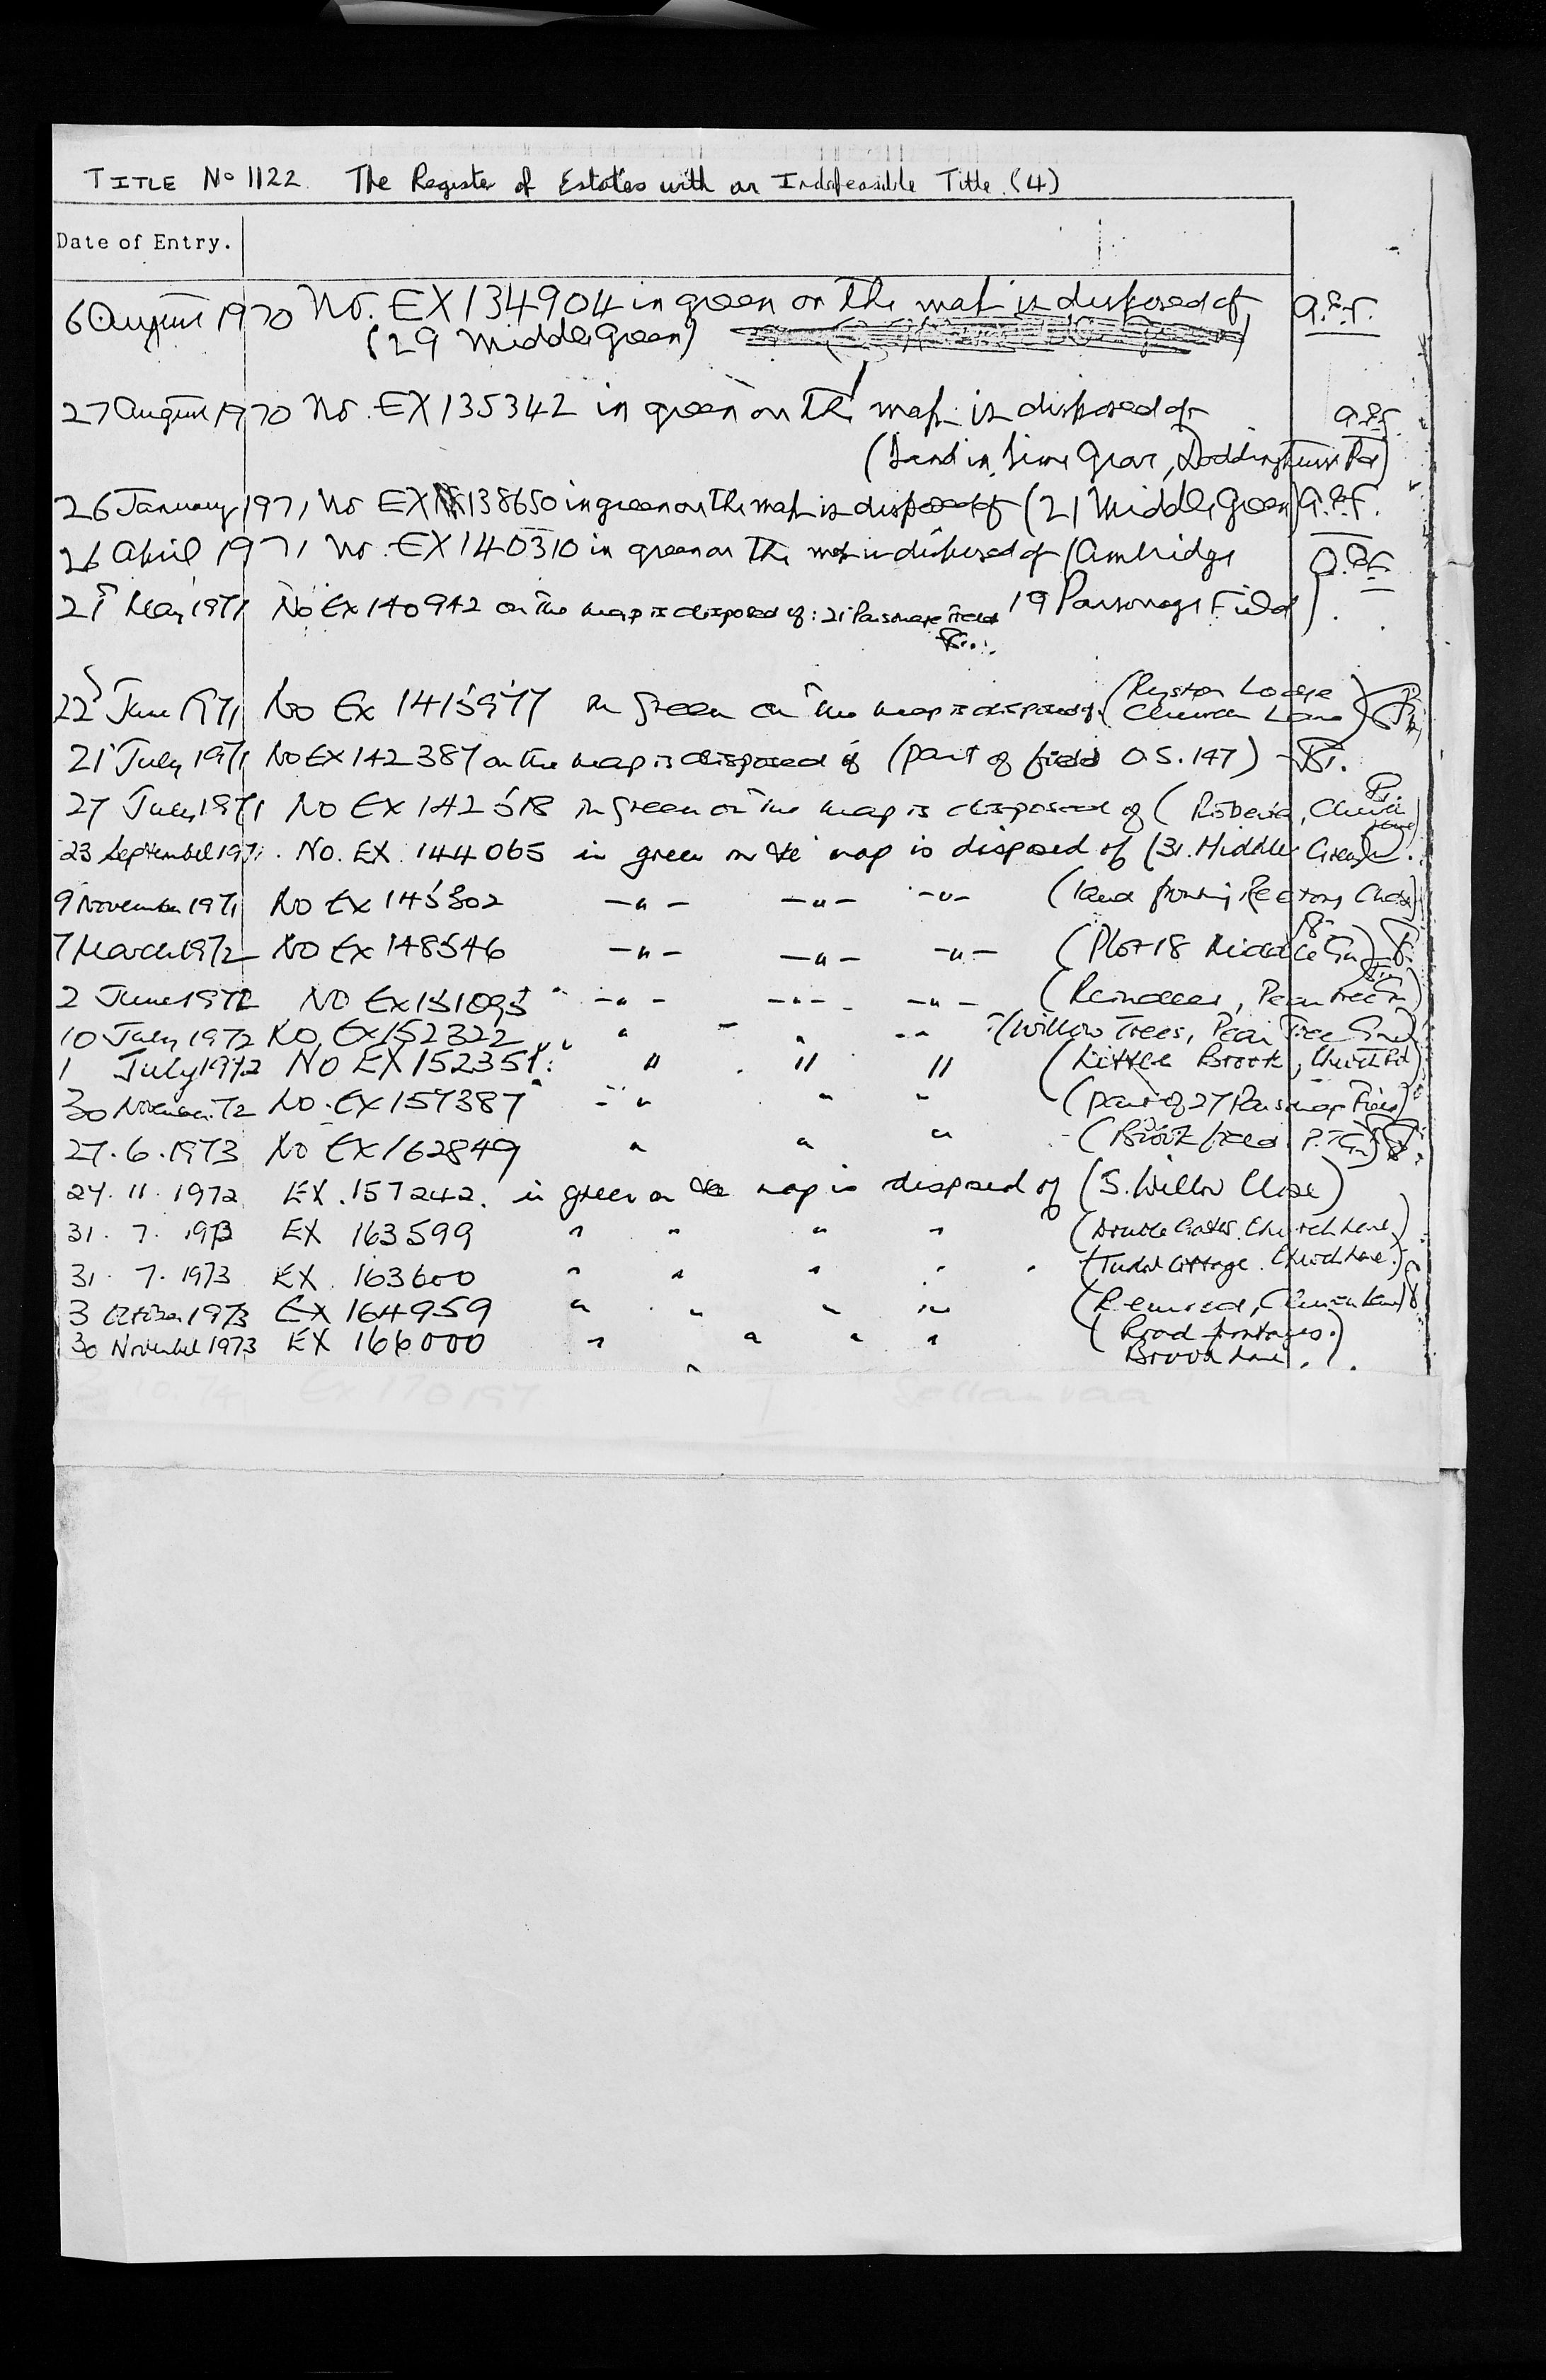 TITLE No 1122. The Register of Estates with an Indefeasible Title. (4)
Date of Entry.
6 August 1970 No. EX134904 in green on the map is disposed of
(29 Middle Green)
27 August 1970 No. EX135342 in green on the map is disposed of
(Land in Lime Grove, Doddinghurst Rd)
26 January 1971 No EX138650 in green on the map is disposed of (21 Middle Green)
26 April 1971 No. EX140310 in green on the map is disposed of (Ambridge
19 Parsonage Field)
21 May 1971 No Ex 140942 on the map is disposed of: 21 Parsonage Field
22 June 1971 No Ex 141597 in green on the map is disposed of (Lodge
Church Lane)
21 July 1971 No EX 142387 on the map is disposed of (part of field O.S. 147)
27 July 1971 No EX 142518 in green on the map is disposed of ( Church
Lane)
23 September 1971. No. EX. 144065 in green on the map is disposed of (31. Middle Green)
9 November 1971 No Ex 145302 -"- -"- -"- (land fronting Rectory Chase)
7 March 1972 No Ex 148546 -"- -"- -"- (Plot 18 Middle Gn)
2 June 1972 No Ex 151095 " -"- -"- -"- (Reindeer, Pear Tree Gn)
10 July 1972 No. Ex 152322 " " " (Willow Trees, Pear Tree Gn)
1 July 1972 No EX 152351 " " " (Little Brook, Church Rd)
30 November 72 No. Ex 157387 " " " (part of 27 Parsonage Field)
27.6.1973 No EX 162849 " " " (Brookfield P.T.Gn)
24.11.1972 EX.157242. in green on the map is disposed of (5. Willow Close)
31.7.1973 EX 163599 " " " " (Double Gates. Church Lane)
31.7.1973 EX. 163600 " " " " (Tudor Cottage. Church Lane.)
3 October 1973 EX 164959 " " " " (Church Lane)
30 November 1973 EX 166000 " " " " (Road frontages.
Brook Lane.)